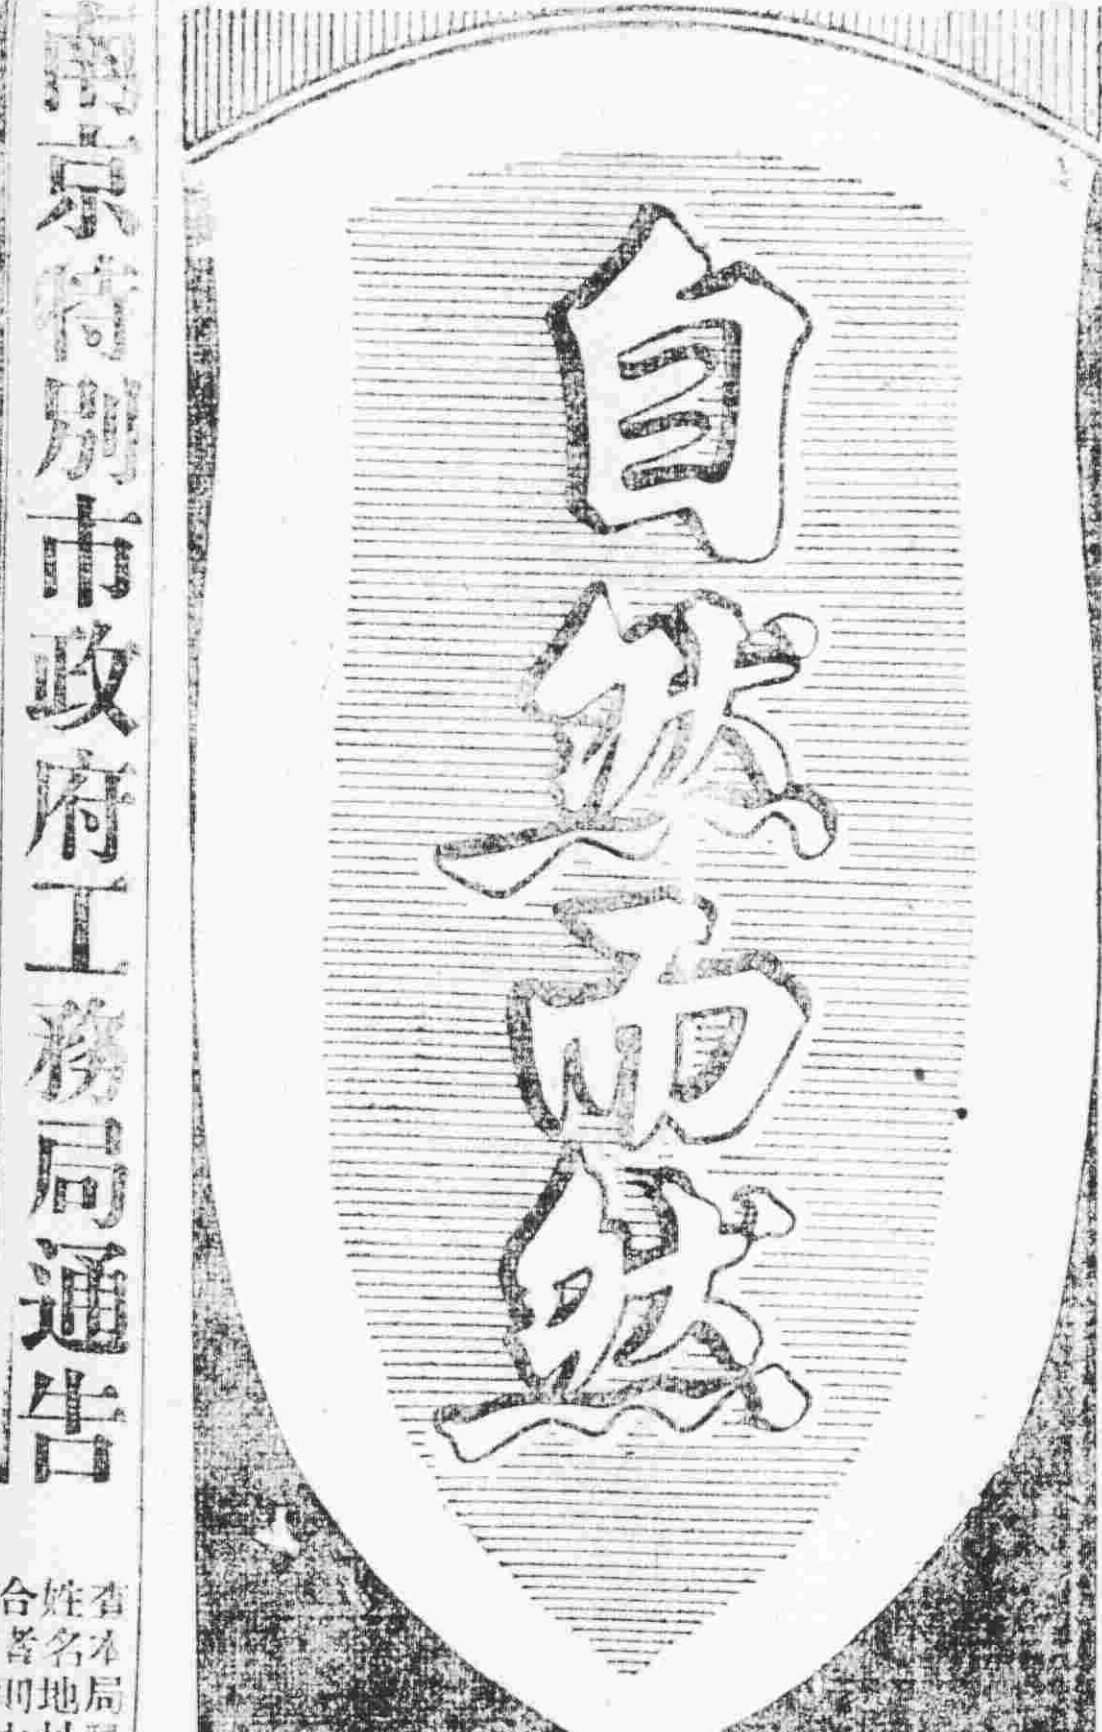 自然而然
南京特別市政府工務局通告
查本局
姓名地
合者